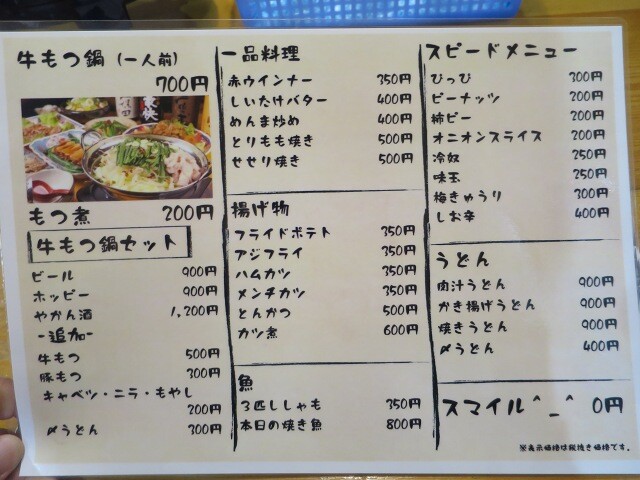 牛もつ鍋 (一人前)
700円
もつ煮 200円
牛もつ鍋セット
ビール 900円
ホッピー 900円
やかん酒 1,200円
-追加-
牛もつ 500円
豚もつ 300円
キャベツ・ニラ・もやし
200円
〆うどん 300円
一品料理
赤ウインナー 350円
しいたけバター 400円
めんま炒め 400円
とりもも焼き 500円
せせり焼き 500円
揚げ物
フライドポテト 350円
アジフライ 350円
ハムカツ 350円
メンチカツ 350円
とんかつ 500円
カツ煮 600円
魚
3匹ししゃも 350円
本日の焼き魚 800円
スピードメニュー
ぴっぴ 300円
ピーナッツ 200円
柿ピー 200円
オニオンスライス 200円
冷奴 250円
味玉 250円
梅きゅうり 300円
しお辛 400円
うどん
肉汁うどん 900円
かき揚げうどん 900円
焼きうどん 900円
〆うどん 400円
スマイル^_^ 0円
※表示価格は税抜き価格です。